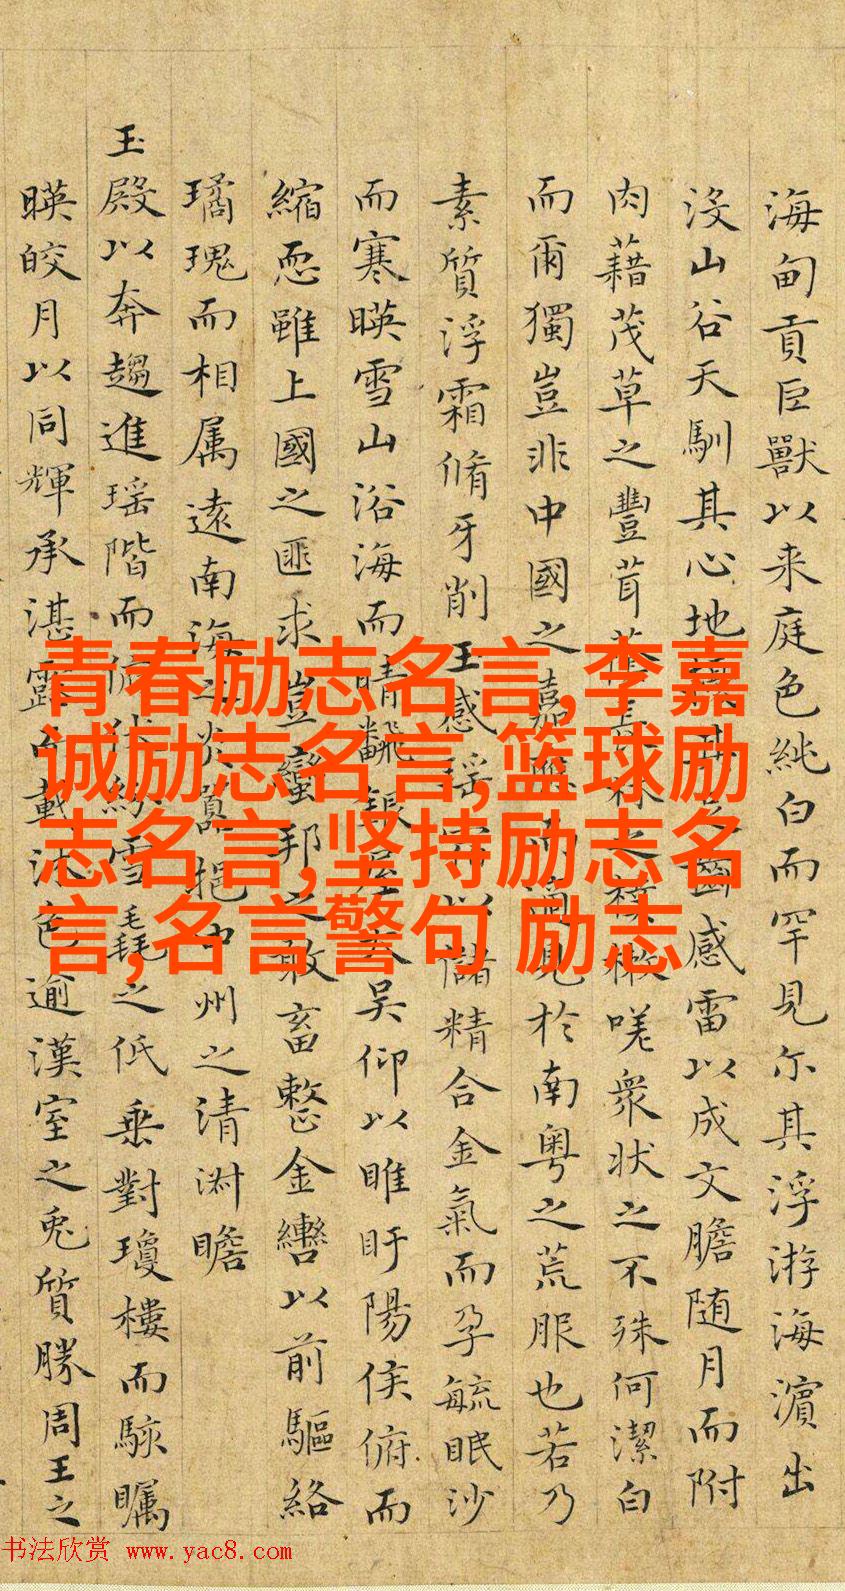 海甸貢巨獸以来庭色純白而罕見尔其浮游海濵出
沒山谷天馴其心地齒感雷以成文膽随月而附
肉藉茂草之豐茸長林之樸樕嗟衆状之不殊何潔白
而爾獨豈非中國之嘉而適見於南粤之荒服也若乃
素質浮霜脩牙削玉感瑶以儲精合金氣而孕毓眠沙
而寒暎雪山浴海而晴翻銀屋吴仰以睢盱陽侯俯而
縮恧雖上國之匪求豈蠻邦之敢畜整金轡以前驅絡
璚瑰而相属遠南海之炎挹中州之清淑瞻
玉殿以奔趨進瑶階而俯伏紛雪毳之低垂對瓊樓而駭矚
暎皎月以同輝承湛露載沐色逾漢室之兎質勝周王之
青春励志名言,李嘉
诚励志名言,篮球励
志名言,坚持励志名
言,名言警句 励志
书法欣赏 www.yac8.com